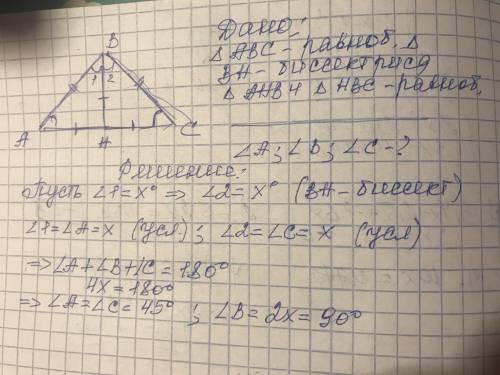 Дано:
△ABC - равноб. △
BH - биссектриса
△AHB и △HBC - равноб.
∠A; ∠B; ∠C - ?
B
1 2
A
H
C
Решение:
Пусть ∠1=x° ⇒ ∠2=x° (BH - биссект)
∠1=∠A=x (усл); ∠2=∠C=x (усл)
⇒∠A+∠B+∠C=180°
4x=180°
⇒∠A=∠C=45°; ∠B=2x=90°